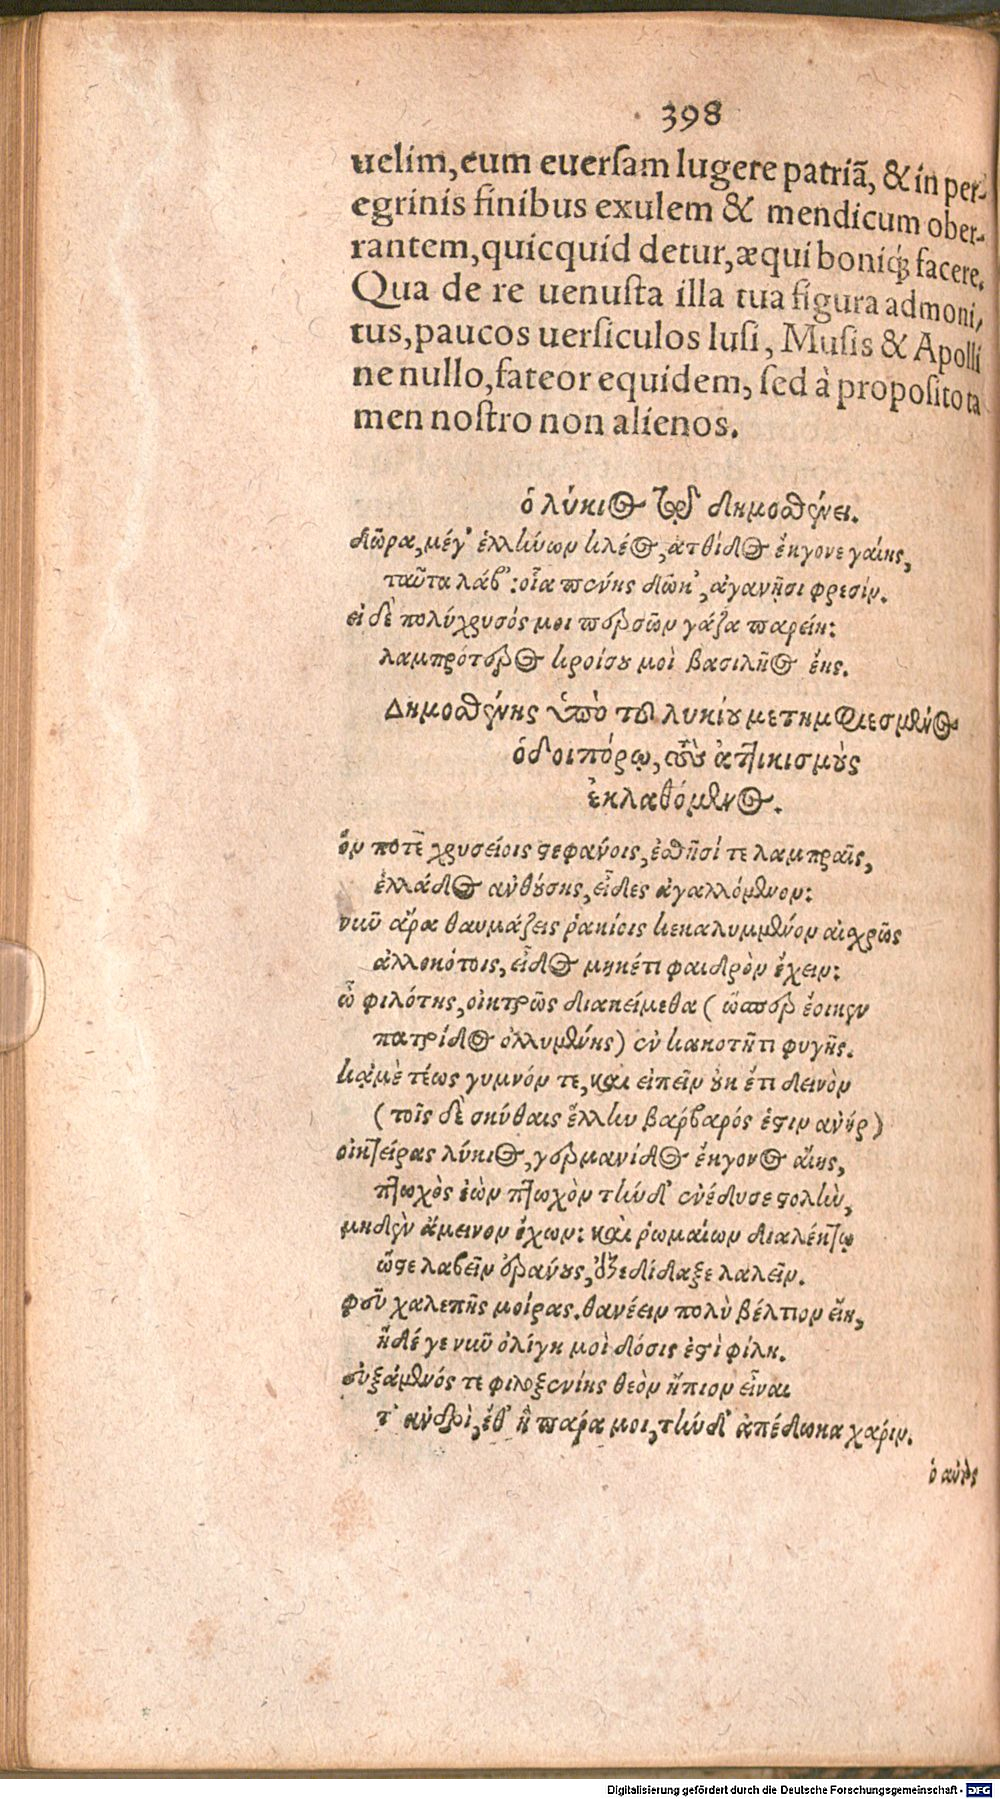 398
uelim, eum euersam lugere patriã, & in per-
egrinis finibus exulem & mendicum ober-
rantem, quicquid detur, æqui boniq́ꝫ facere.
Qua de re uenusta illa tua figura admoni,
tus, paucos uersiculos lusi, Musis & Apolli
ne nullo, fateor equidem, sed à proposito ta
men nostro non alienos.
ὁ λύκιος τῷ δημοσθένει.
δῶρα, μέγ' ἑλλήνων κλέος, ἀτθίδος ἔκγονε γαίης,
ταῦτα λάβ': οἷα πενης δῶκ', ἀγανῇσι φρεσίν.
εἰ δὲ πολύχρυσός μοι περσῶν γάζα παρείη:
λαμπρότερος κροίσου μοὶ βασιλῆος ἔης.
Δημοσθένης ὑπὸ τοῦ λυκίου μετημφιεσμένος
ὁδοιπόρῳ, τοὺς ἀττικισμοὺς
ἐκλαθόμενος.
ὅν ποτὲ χρυσείοις στεφάνοις, ἐσθῆσί τε λαμπραῖς,
ἑλλάδος ἀνθούσης, εἶδες ἀγαλλόμενον:
νῦν ἄρα θαυμάζεις ῥακίοις κεκαλυμμένον αἰσχρῶς
ἀλλοκότοις, εἶδος μηκέτι φαιδρὸν ἔχειν:
ὦ φιλότης, οἰκτρῶς διακείμεθα (ὥσπερ ἔοικεν
πατρίδος ὀλλυμένης) ἐν κακοτῆτι φυγῆς.
κᾀμὲ τέως γυμνόν τε, καὶ εἰπεῖν οὐκ ἔτι δεινὸν
(τοῖς δὲ σκύθαις ἕλλην βάρβαρός ἐστιν ἀνήρ)
οἰκτείρας λύκιος, γερμανίδος ἔκγονος αἴης,
πτωχὸς ἐὼν πτωχὸν τήνδ' ἐνέδυσε στολὴν,
μηδὲν ἄμεινον ἔχων: καὶ ῥωμαίων διαλέκτῳ
ὥστε λαβεῖν ἐράνους, ἐξεδίδαξε λαλεῖν.
φεῦ χαλεπῆς μοίρας. θανέειν πολὺ βέλτιον εἴη,
ἠδέ γε νῦν ὀλίγη μοὶ δόσις ἐστὶ φίλη.
εὐξάμενός τε φιλοξενίης θεὸν ἤπιον εἶναι
τ' ἀνδρὶ, ἔθ' ἣ πάρα μοι, τήνδ' ἀπέδωκα χάριν.
ὁ αὐτὸς
Digitalisierung gefördert durch die Deutsche Forschungsgemeinschaft - DFG